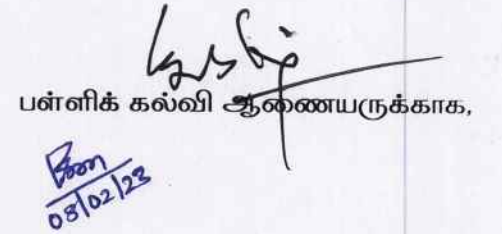 பள்ளிக் கல்வி ஆணையருக்காக,
08/02/23